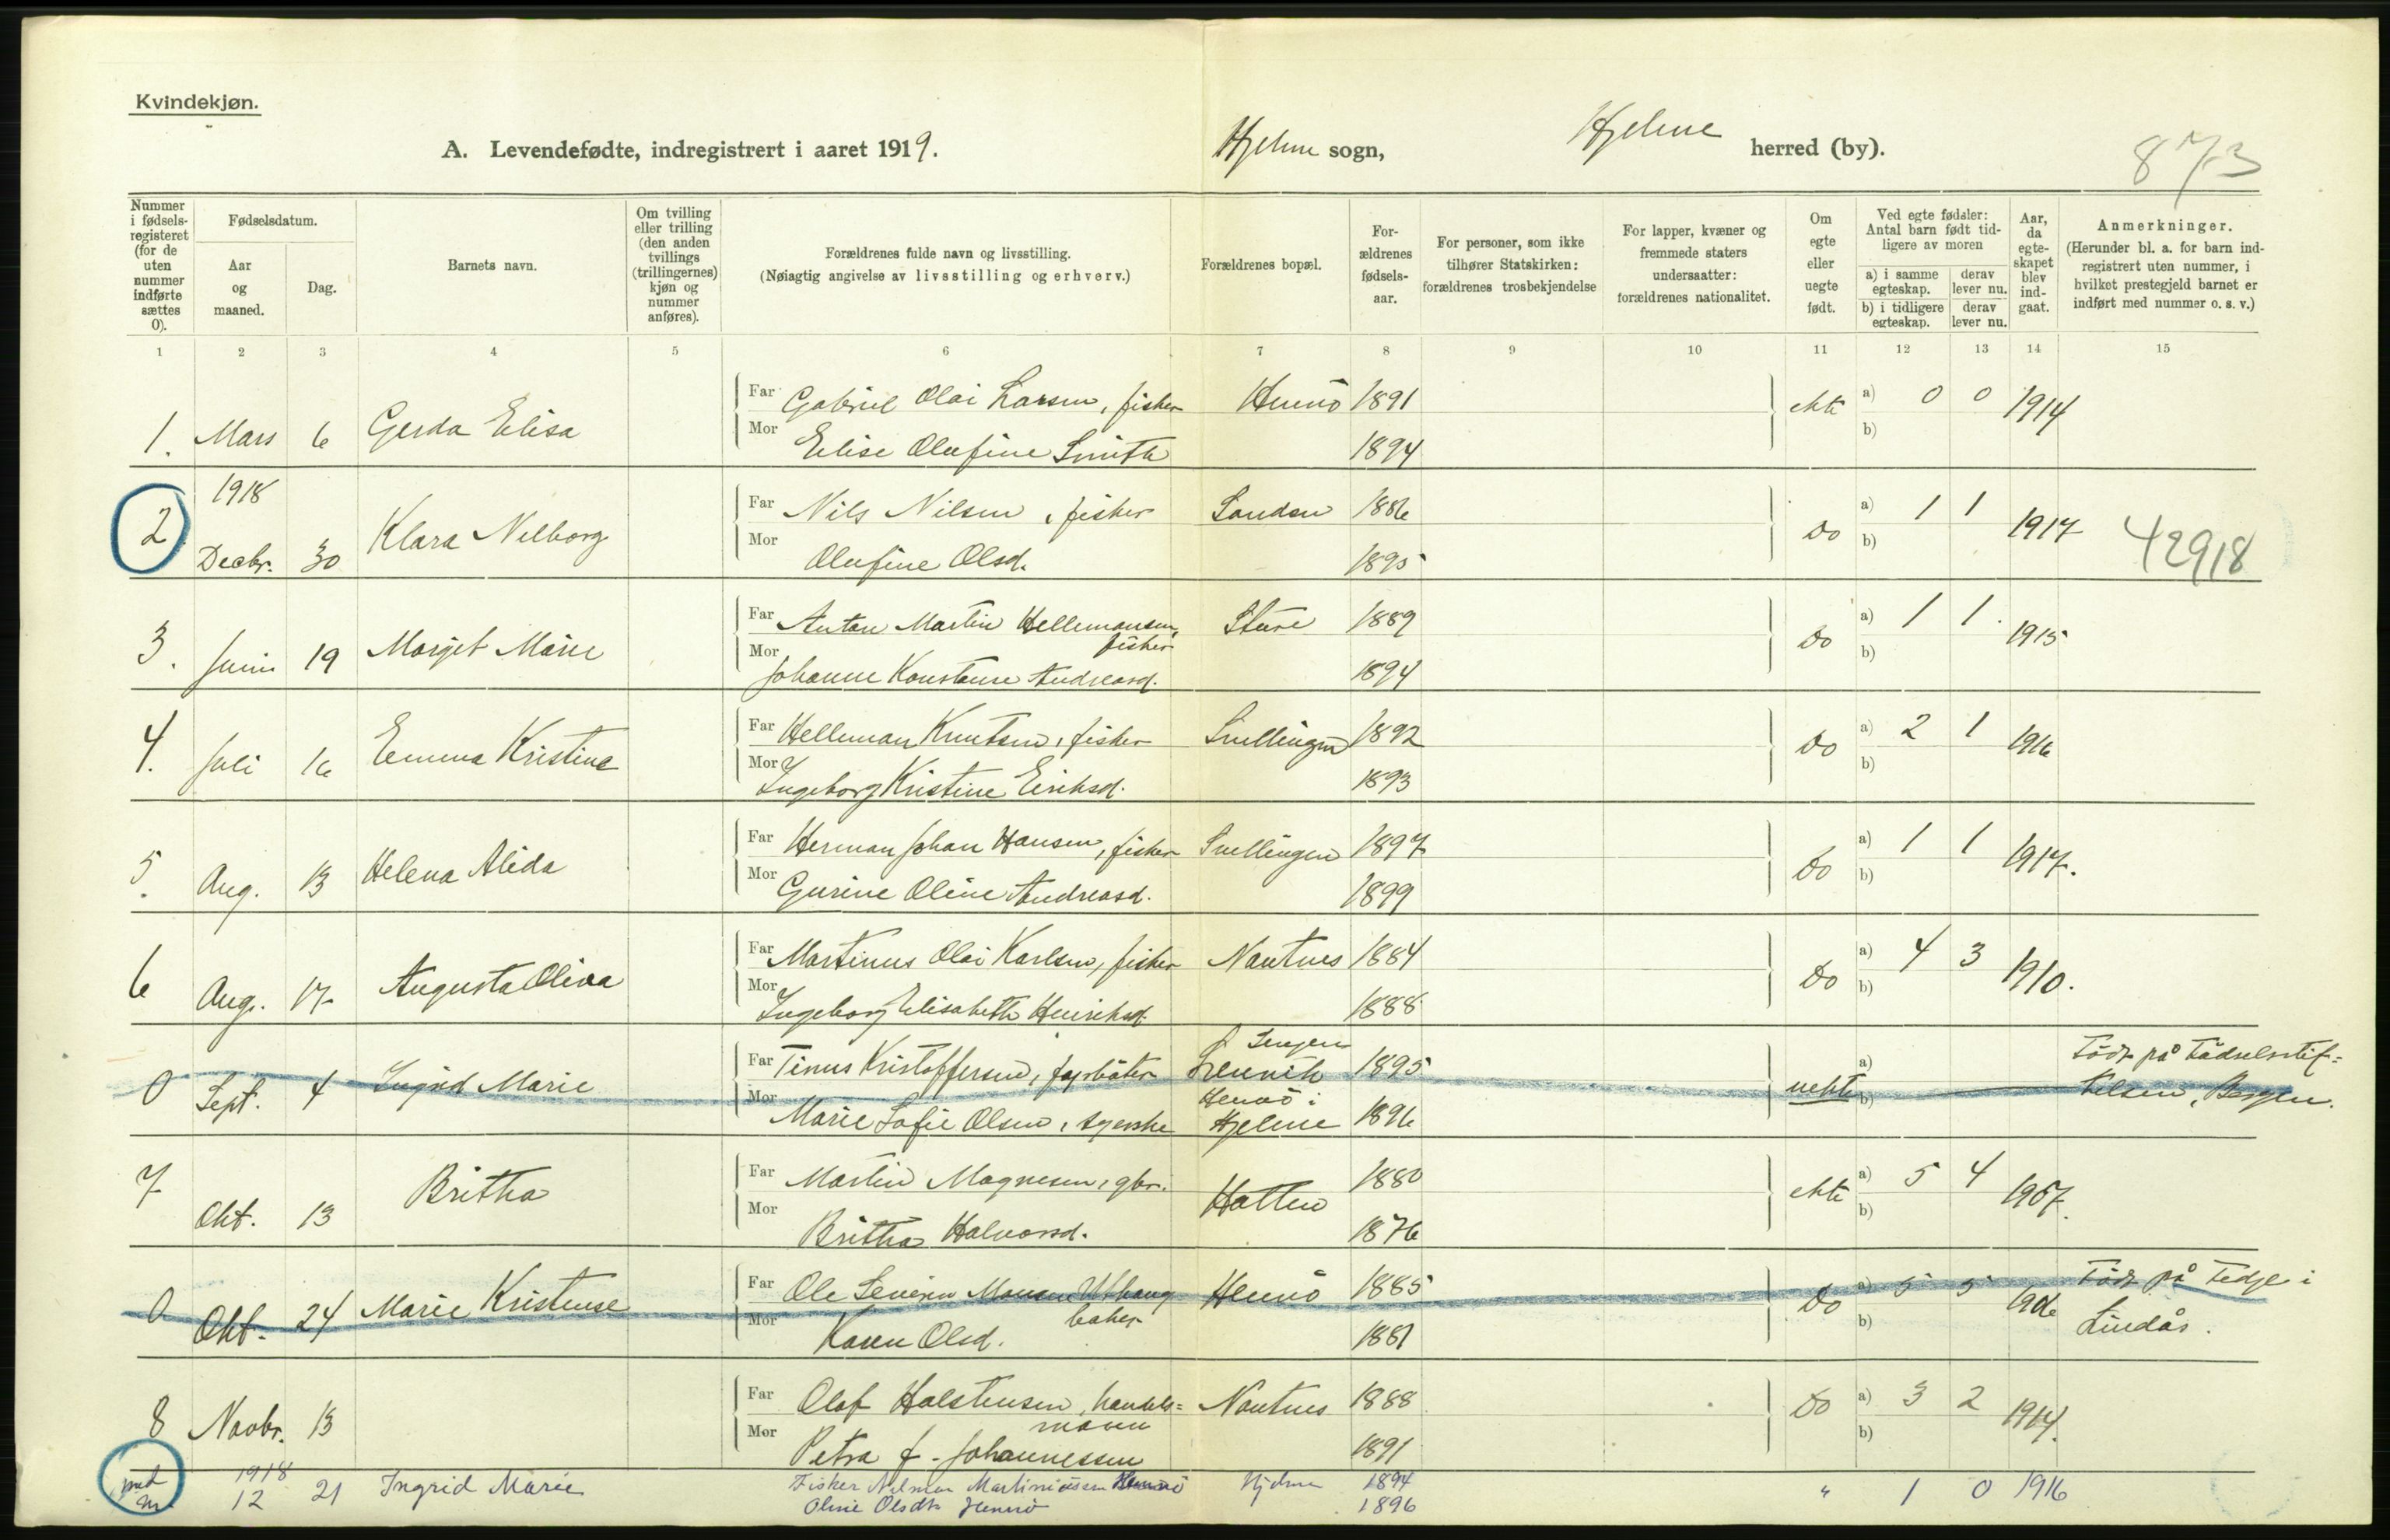 Kvindekjøn.
A. Levendefødte, indregistrert i aaret 1919. Hjelme sogn, Hjelme herred (by). 873
Nummer i fødselsregisteret (for de uten nummer indførte sættes 0).
Fødselsdatum.
Aar og maaned.
Dag.
Barnets navn.
Om tvilling eller trilling (den anden tvillings (trillingernes) kjøn og nummer anføres).
Forældrenes fulde navn og livsstilling.
(Nøiagtig angivelse av livsstilling og erhverv.)
Forældrenes bopæl.
Forældrenes fødselsaar.
For personer, som ikke tilhører Statskirken: forældrenes trosbekjendelse
For lapper, kvæner og fremmede staters undersaatter: forældrenes nationalitet.
Om egte eller uegte født.
Ved egte fødsler: Antal barn født tidligere av moren
a) i samme egteskap. derav lever nu.
b) i tidligere egteskap. derav lever nu.
Aar, da egteskapet blev indgaat.
Anmerkninger.
(Herunder bl. a. for barn indregistrert uten nummer, i hvilket prestegjeld barnet er indført med nummer o. s. v.)
1 2 3 4 5 6 7 8 9 10 11 12 13 14 15
1. Mars 6 Gerda Elisa Far Gabriel Olai Larsen, fisker Hernö 1891 ekte a) 0 0 1914
Mor Elise Olufine Smith 1894 b)
2 1918 Decbr. 30 Klara Nilborg Far Nils Nilsen, fisker Sanden 1886 Do a) 1 1 1917 42918
Mor Olufine Olsd. 1895 b)
3. Juni 19 Margit Marie Far Anton Martin Hellemansen, fisker Sture 1889 Do a) 1 1 1915
Mor Johanne Konstanse Andreasd. 1894 b)
4. Juli 16 Emma Kristine Far Helleman Knutsen, fisker Snellingen 1892 Do a) 2 1 1916
Mor Ingeborg Kristine Eriksd. 1893 b)
5. Aug. 13 Helena Alida Far Herman Johan Hansen, fisker Snellingen 1897 Do a) 1 1 1917.
Mor Gurine Oline Andreasd. 1899 b)
6 Aug. 17 Augusta Oliva Far Martinus Olai Karlsen, fisker Nautnes 1884 Do a) 4 3 1910.
Mor Ingeborg Elisabeth Henriksd. 1888 b)
0 Sept. 4 Ingrid Marie Far Tinus Kristoffersen, fyrbøter 1895 uekte a) Född på Födselsstif=
Mor Marie Sofie Olsen, syerske Hernö i Hjelme 1896 b) telsen, Bergen.
7 Okt. 13 Britha Far Martin Magnesen, gbr. Hatten 1880 ekte a) 5 4 1907.
Mor Britha Halvorsd. 1876 b)
0 Okt. 24 Marie Kristense Far Ole Severin Monsen Uthaug baker Hernö 1885 Do a) 5 5 1906 Född på Fedje i
Mor Karen Olsd. 1881 b) Lindås.
8 Novbr. 13 Far Olaf Halstensen, handels= mann Nautnes 1888 Do a) 3 2 1914.
Mor Petra f. Johannessen 1891 b)
1918 12 21 Ingrid Marie Fisker Nilman Martiniussen Hernö Hjelme 1894 " 1 0 1916
Oline Olsdtr Hernö 1896